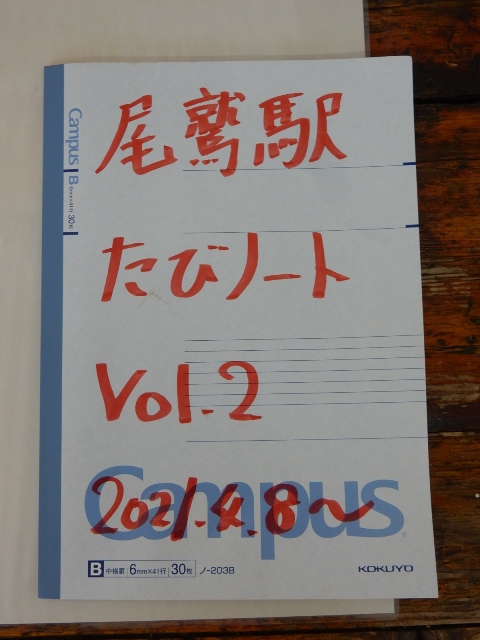 尾鷲駅
たびノート
Vol.2
2021.4.8～
Campus
B 中横罫 6mm×41行 30枚 ノ-203B
KOKUYO
Campus B 6mm×41行 30枚